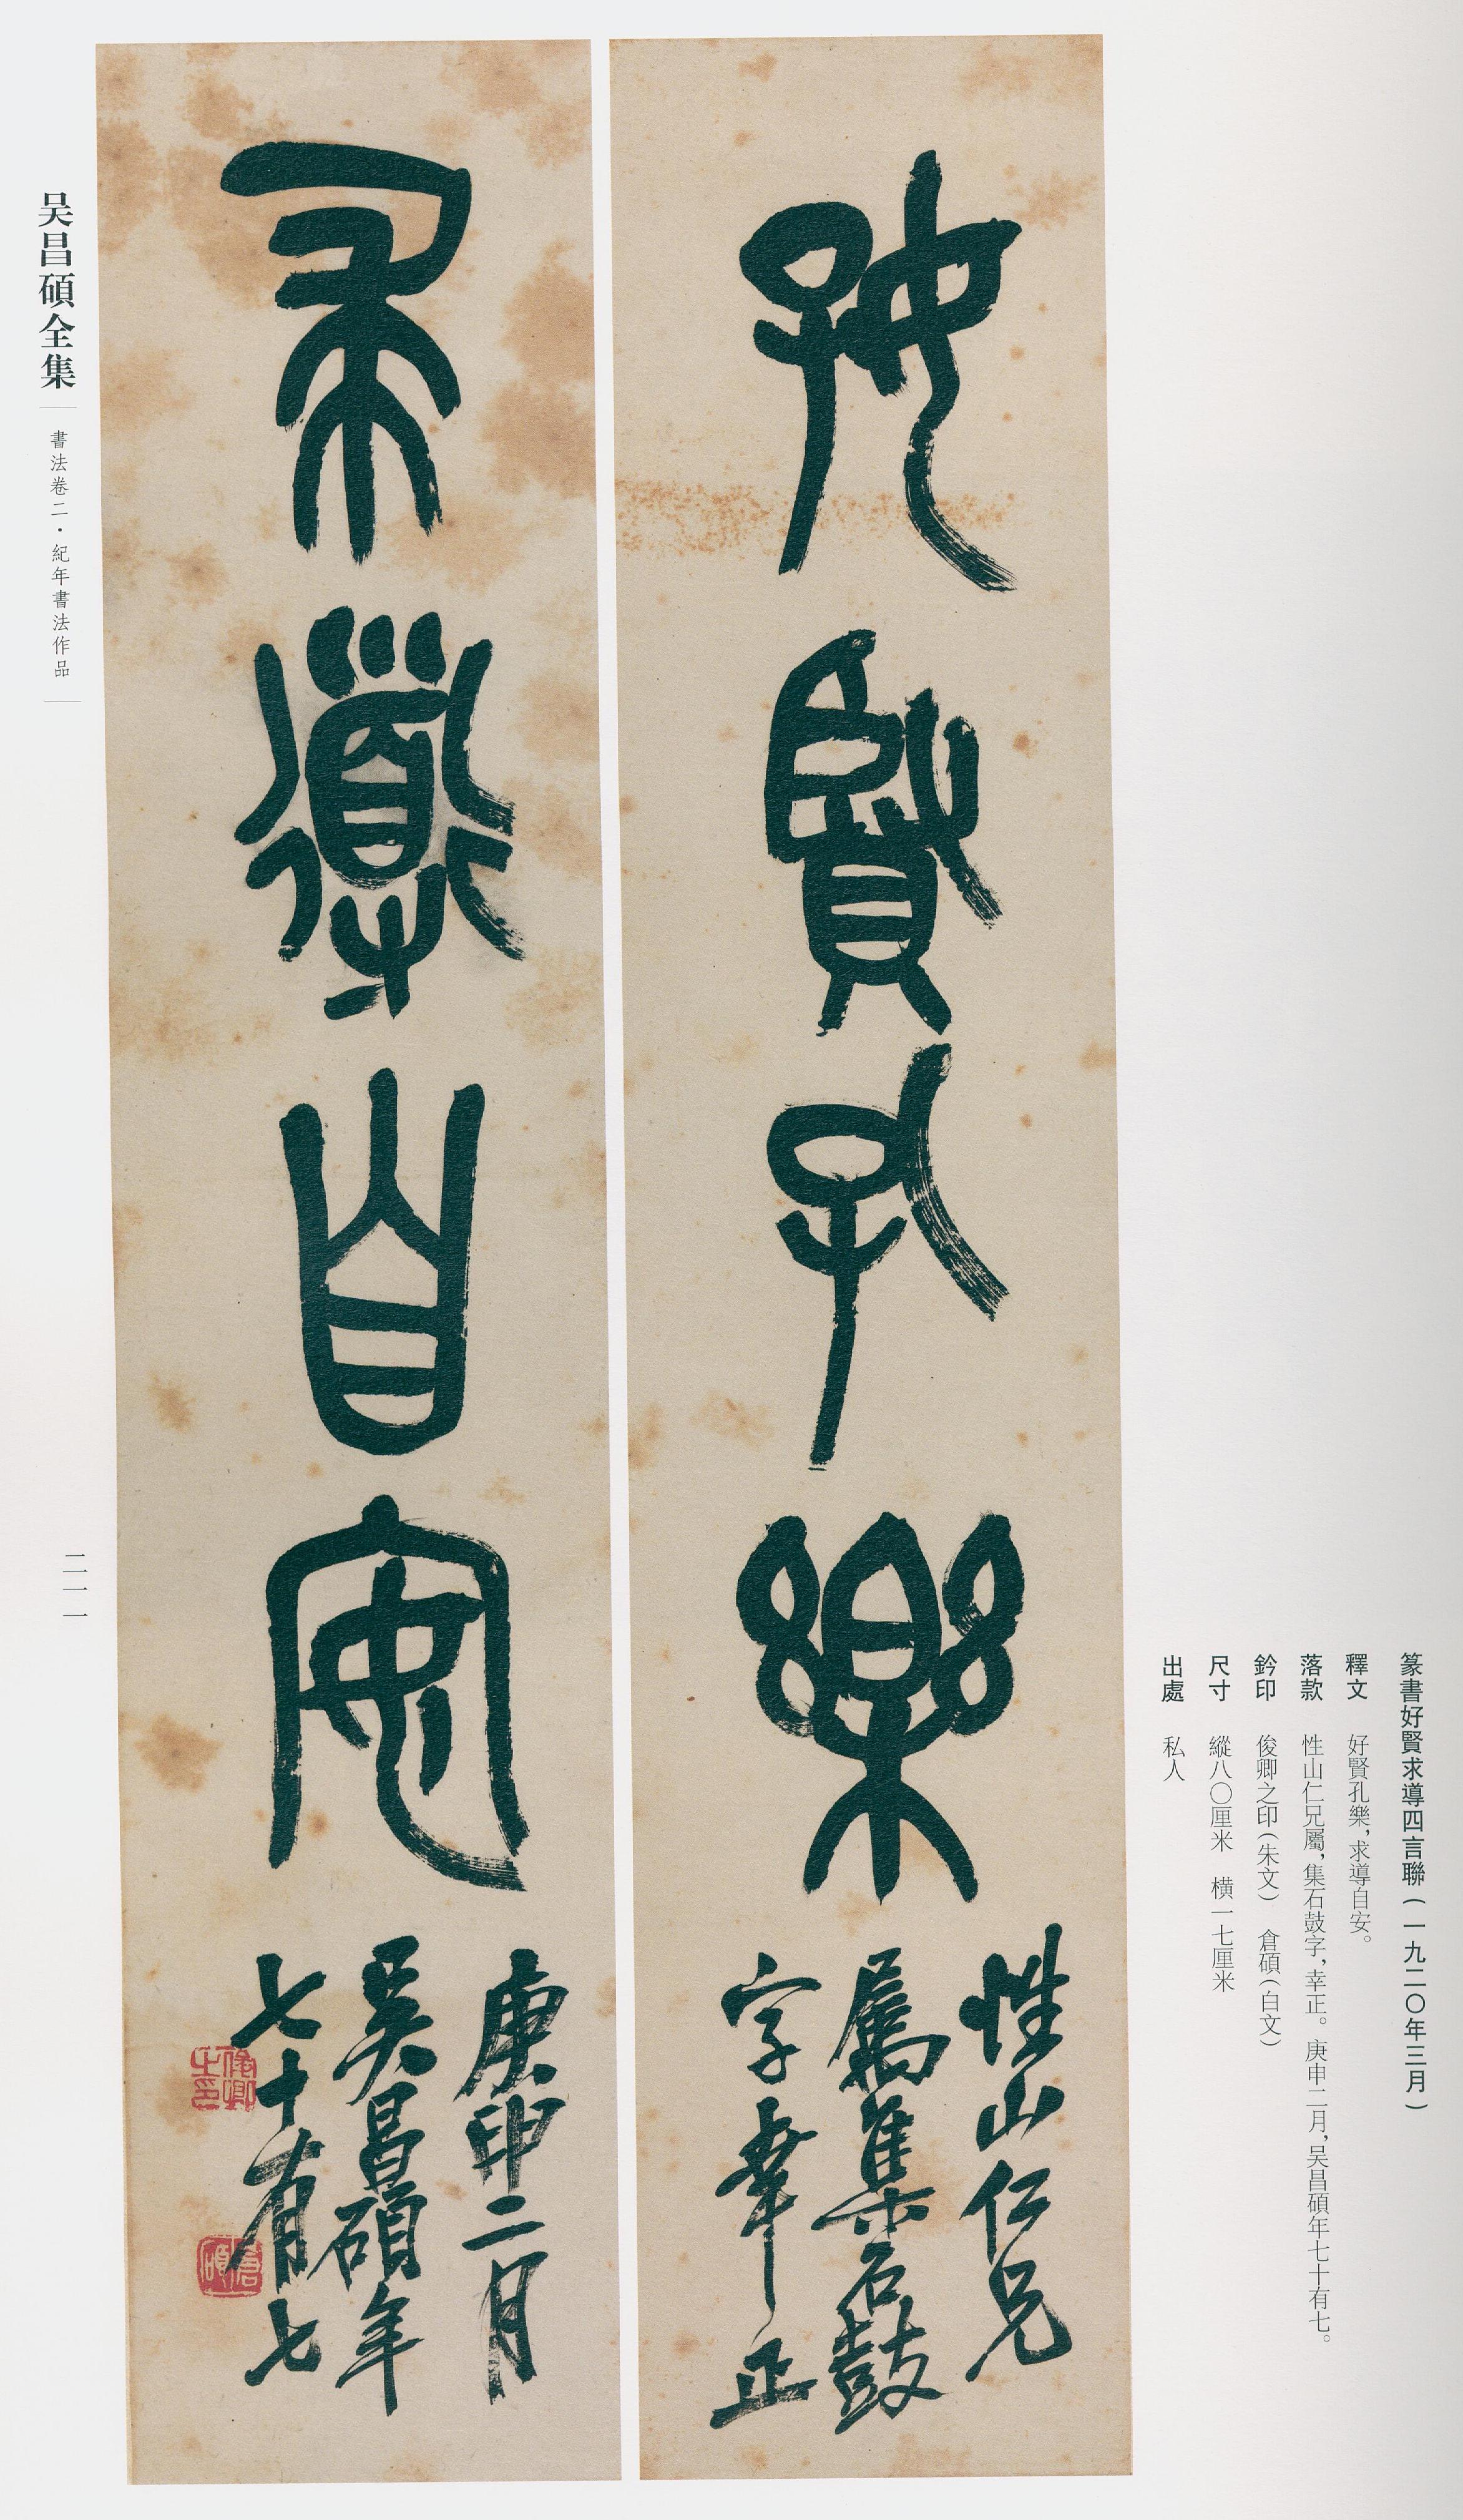 篆書好賢求導四言聯（一九二〇年三月）
釋文　好賢孔樂，求導自安。
落款　性山仁兄屬，集石鼓字，幸正。庚申二月，吴昌碩年七十有七。
鈐印　俊卿之印（朱文）　倉碩（白文）
尺寸　縱八〇厘米　横一七厘米
出處　私人
好賢孔樂
性山仁兄
屬集石鼓
字幸正
求導自安
庚申二月
吴昌碩年
七十有七
俊卿之印
倉碩
吴昌碩全集
書法卷二·紀年書法作品
二一一